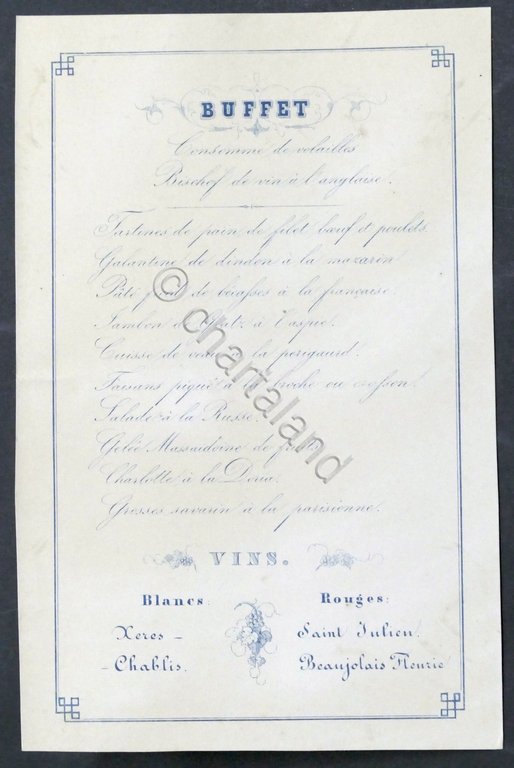 BUFFET
Consommé de volailles
Bischof de vin à l'anglaise.
Tartines de pain de filet bœuf et poulets
Galantine de dindon à la mazarin
Pâté de bécasses à la française
Jambon à l'aspic.
Cuisse de la perigaurd.
Faisans piqué à la broche ou cresson.
Salade à la Russe.
Gelée Massaidoine de fruits
Charlotte à la Doria.
Grosses savarin à la parisienne.
VINS.
Blancs: Rouges:
Xeres - Saint Julien.
- Chablis. Beaujolais Fleurie
© chartaland